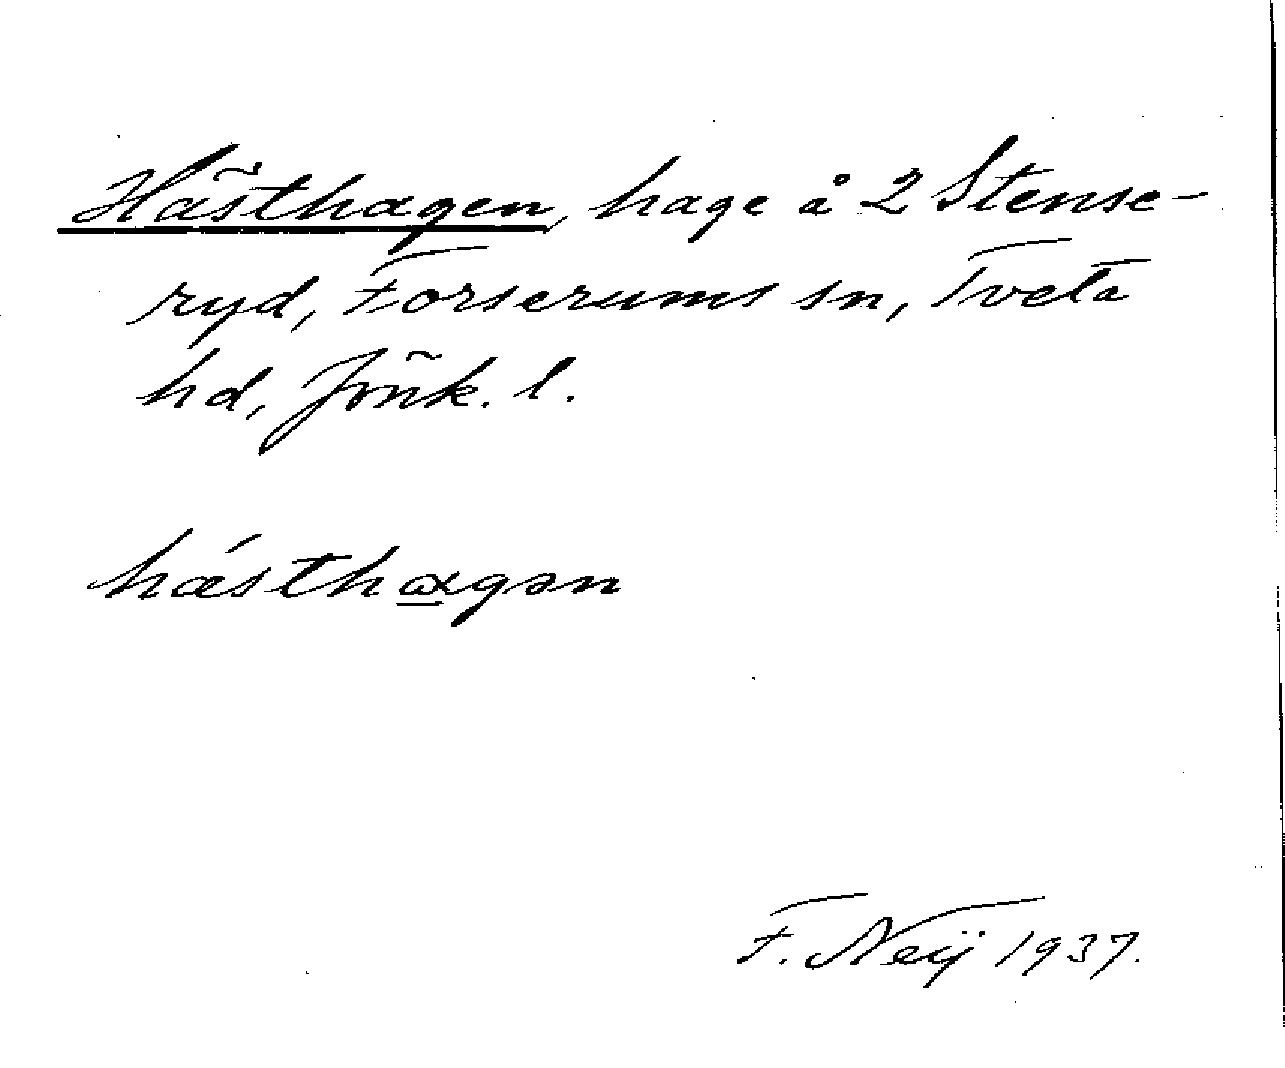 Hästhagen, hage å 2 Stense-
ryd, Forserums sn, Tveta
hd, Jönk. l.
hǽsthαgən
F. Neij 1937.